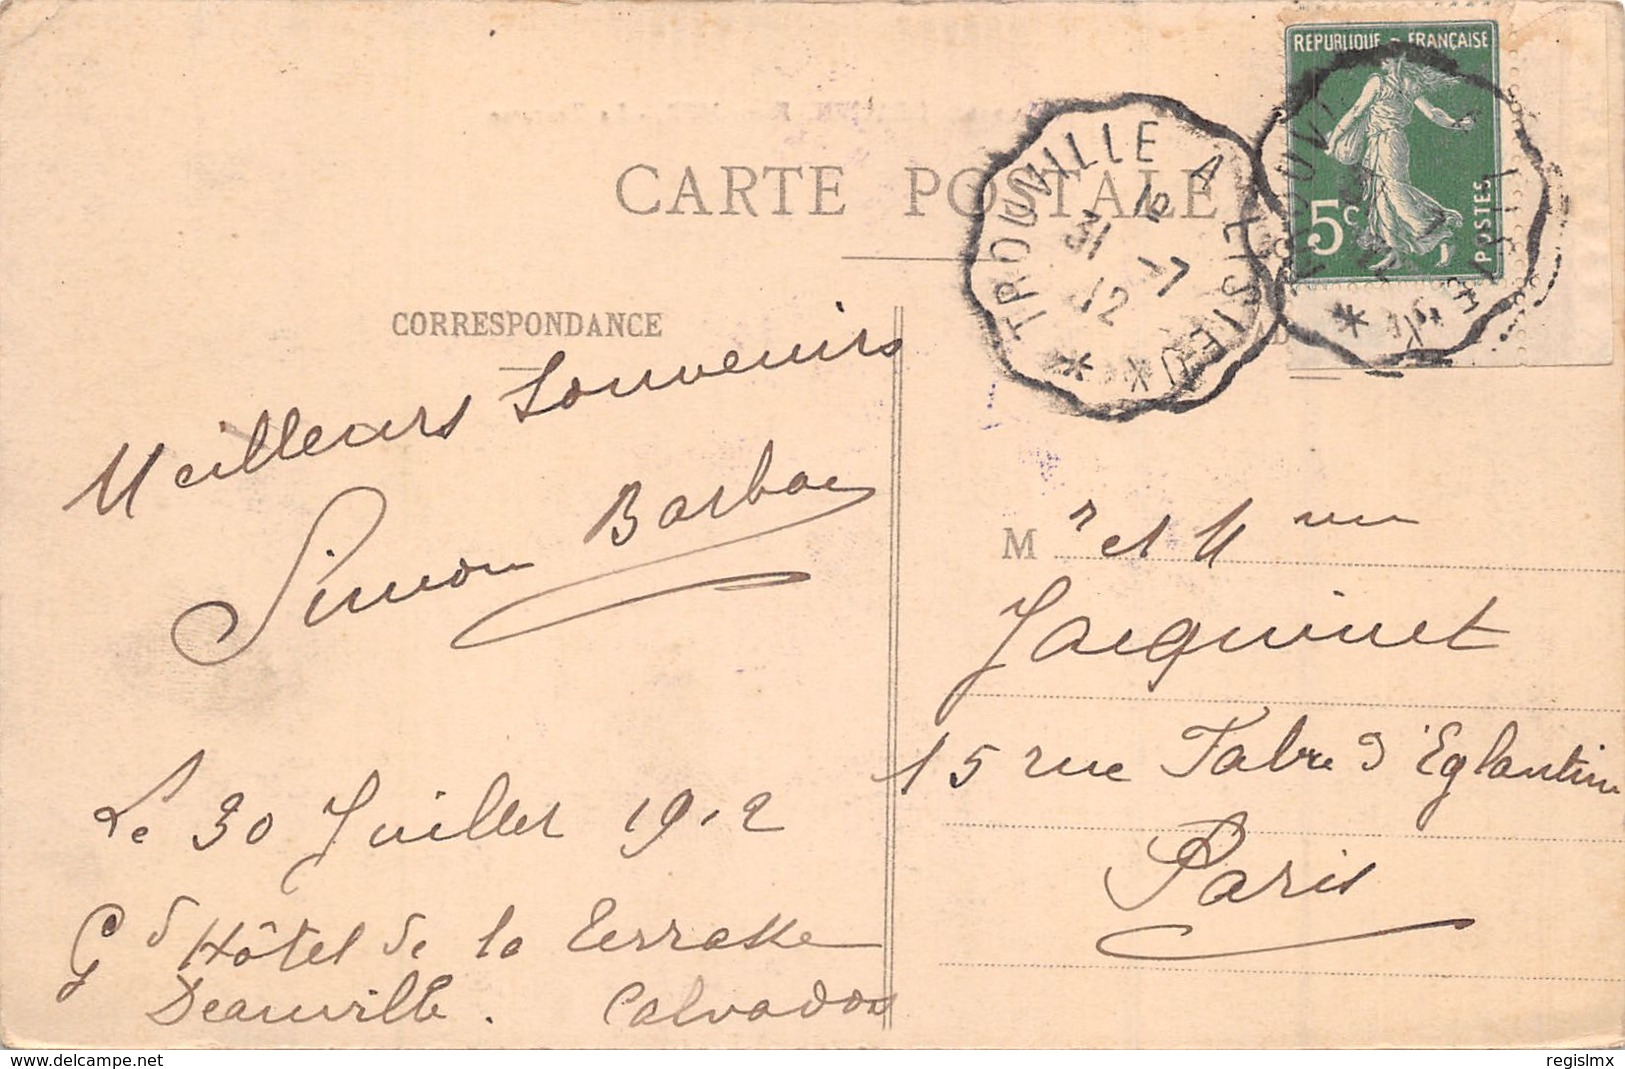 CARTE POSTALE
REPUBLIQUE - FRANÇAISE
5c
POSTES
TROUVILLE A LISIEUX
31 -7
12
CORRESPONDANCE
Meilleurs Souvenirs
Simon
Le 30 Juillet 1912
Gd Hôtel de la Terrasse
Deauville. Calvados
Mr et Mme
Jacquinet
15 rue Fabre d'Eglantine
Paris
www.delcampe.net
regislmx